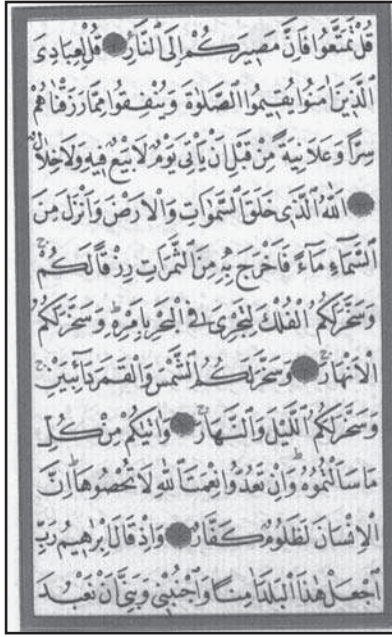 قُلْ تَمَتَّعُوا فَاِنَّ مَصِيرَكُمْ اِلَى النَّارِ قُلْ لِعِبَادِىَ
الَّذِينَ اٰمَنُوا يُقِيمُوا الصَّلٰوةَ وَيُنْفِقُوا مِمَّا رَزَقْنَاهُمْ
سِرًّا وَعَلَانِيَةً مِنْ قَبْلِ اَنْ يَاْتِىَ يَوْمٌ لَا بَيْعٌ فِيهِ وَلَا خِلَالٌ
اَللّٰهُ الَّذِى خَلَقَ السَّمٰوَاتِ وَالْاَرْضَ وَاَنْزَلَ مِنَ
السَّمَاءِ مَاءً فَاَخْرَجَ بِهِ مِنَ الثَّمَرَاتِ رِزْقًا لَكُمْ
وَسَخَّرَ لَكُمُ الْفُلْكَ لِتَجْرِىَ فِى الْبَحْرِ بِاَمْرِهِ وَسَخَّرَ لَكُمُ
الْاَنْهَارَ وَسَخَّرَ لَكُمُ الشَّمْسَ وَالْقَمَرَ دَائِبَيْنِ
وَسَخَّرَ لَكُمُ اللَّيْلَ وَالنَّهَارَ وَاٰتٰيكُمْ مِنْ كُلِّ
مَا سَاَلْتُمُوهُ وَاِنْ تَعُدُّوا نِعْمَتَ اللّٰهِ لَا تُحْصُوهَا اِنَّ
الْاِنْسَانَ لَظَلُومٌ كَفَّارٌ وَاِذْ قَالَ اِبْرٰهِيمُ رَبِّ
اجْعَلْ هٰذَا الْبَلَدَ اٰمِنًا وَاجْنُبْنِى وَبَنِىَّ اَنْ نَعْبُدَ